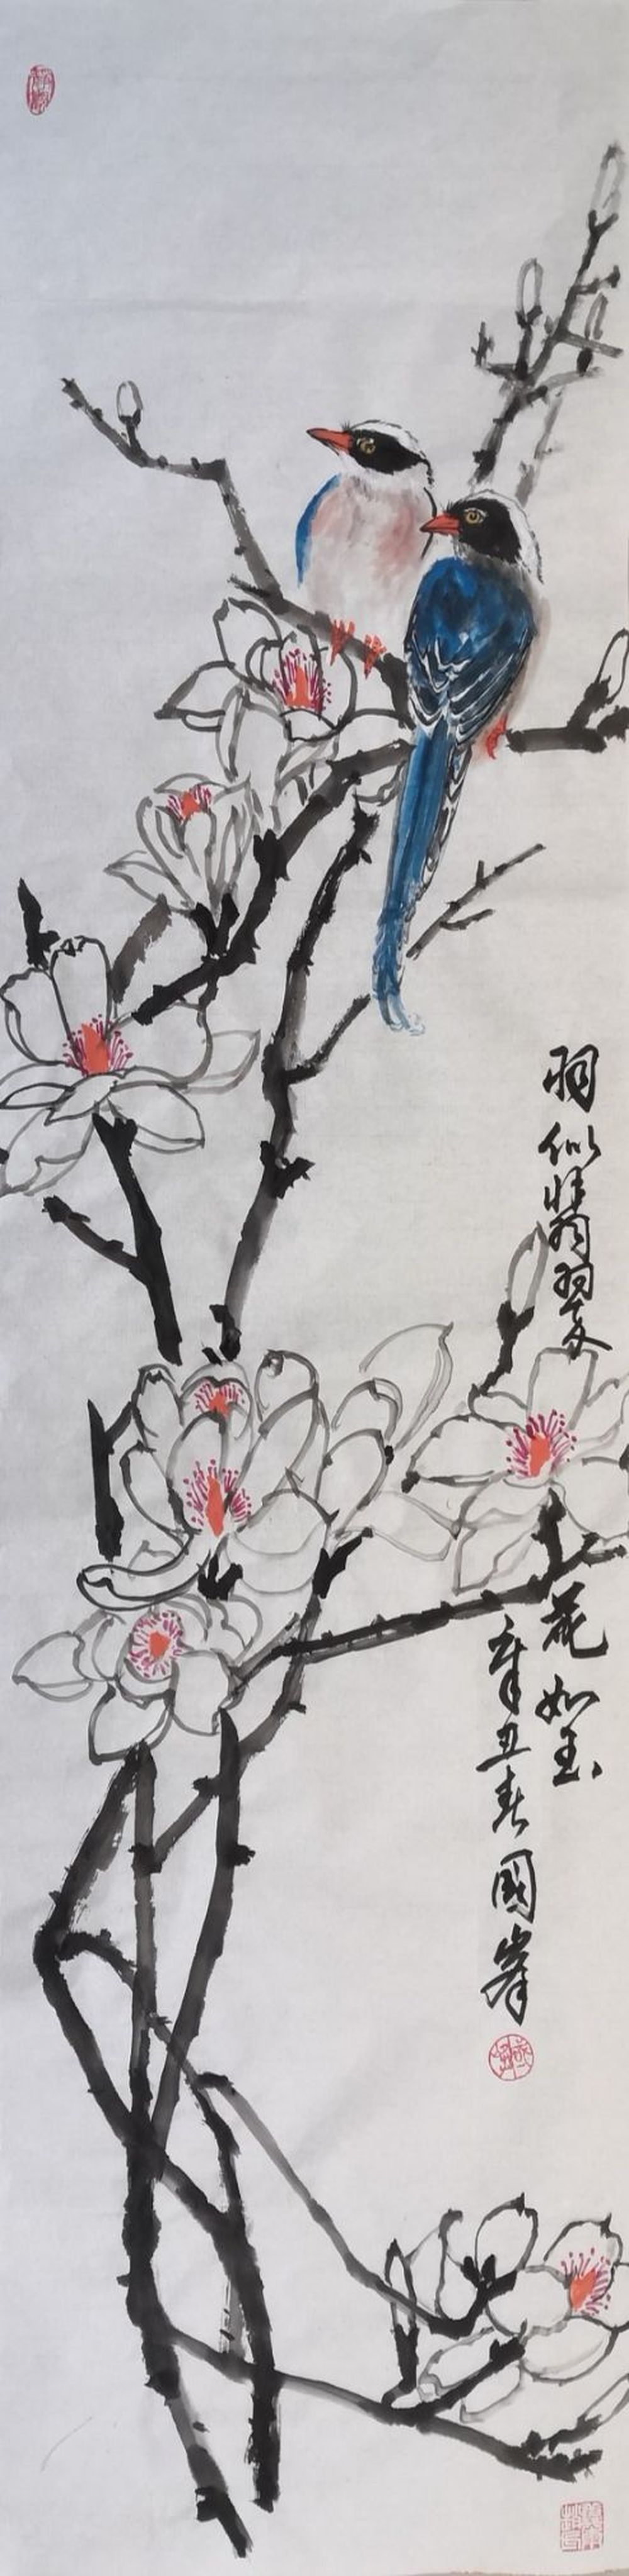 羽似翡翠花如玉
辛丑春國峯